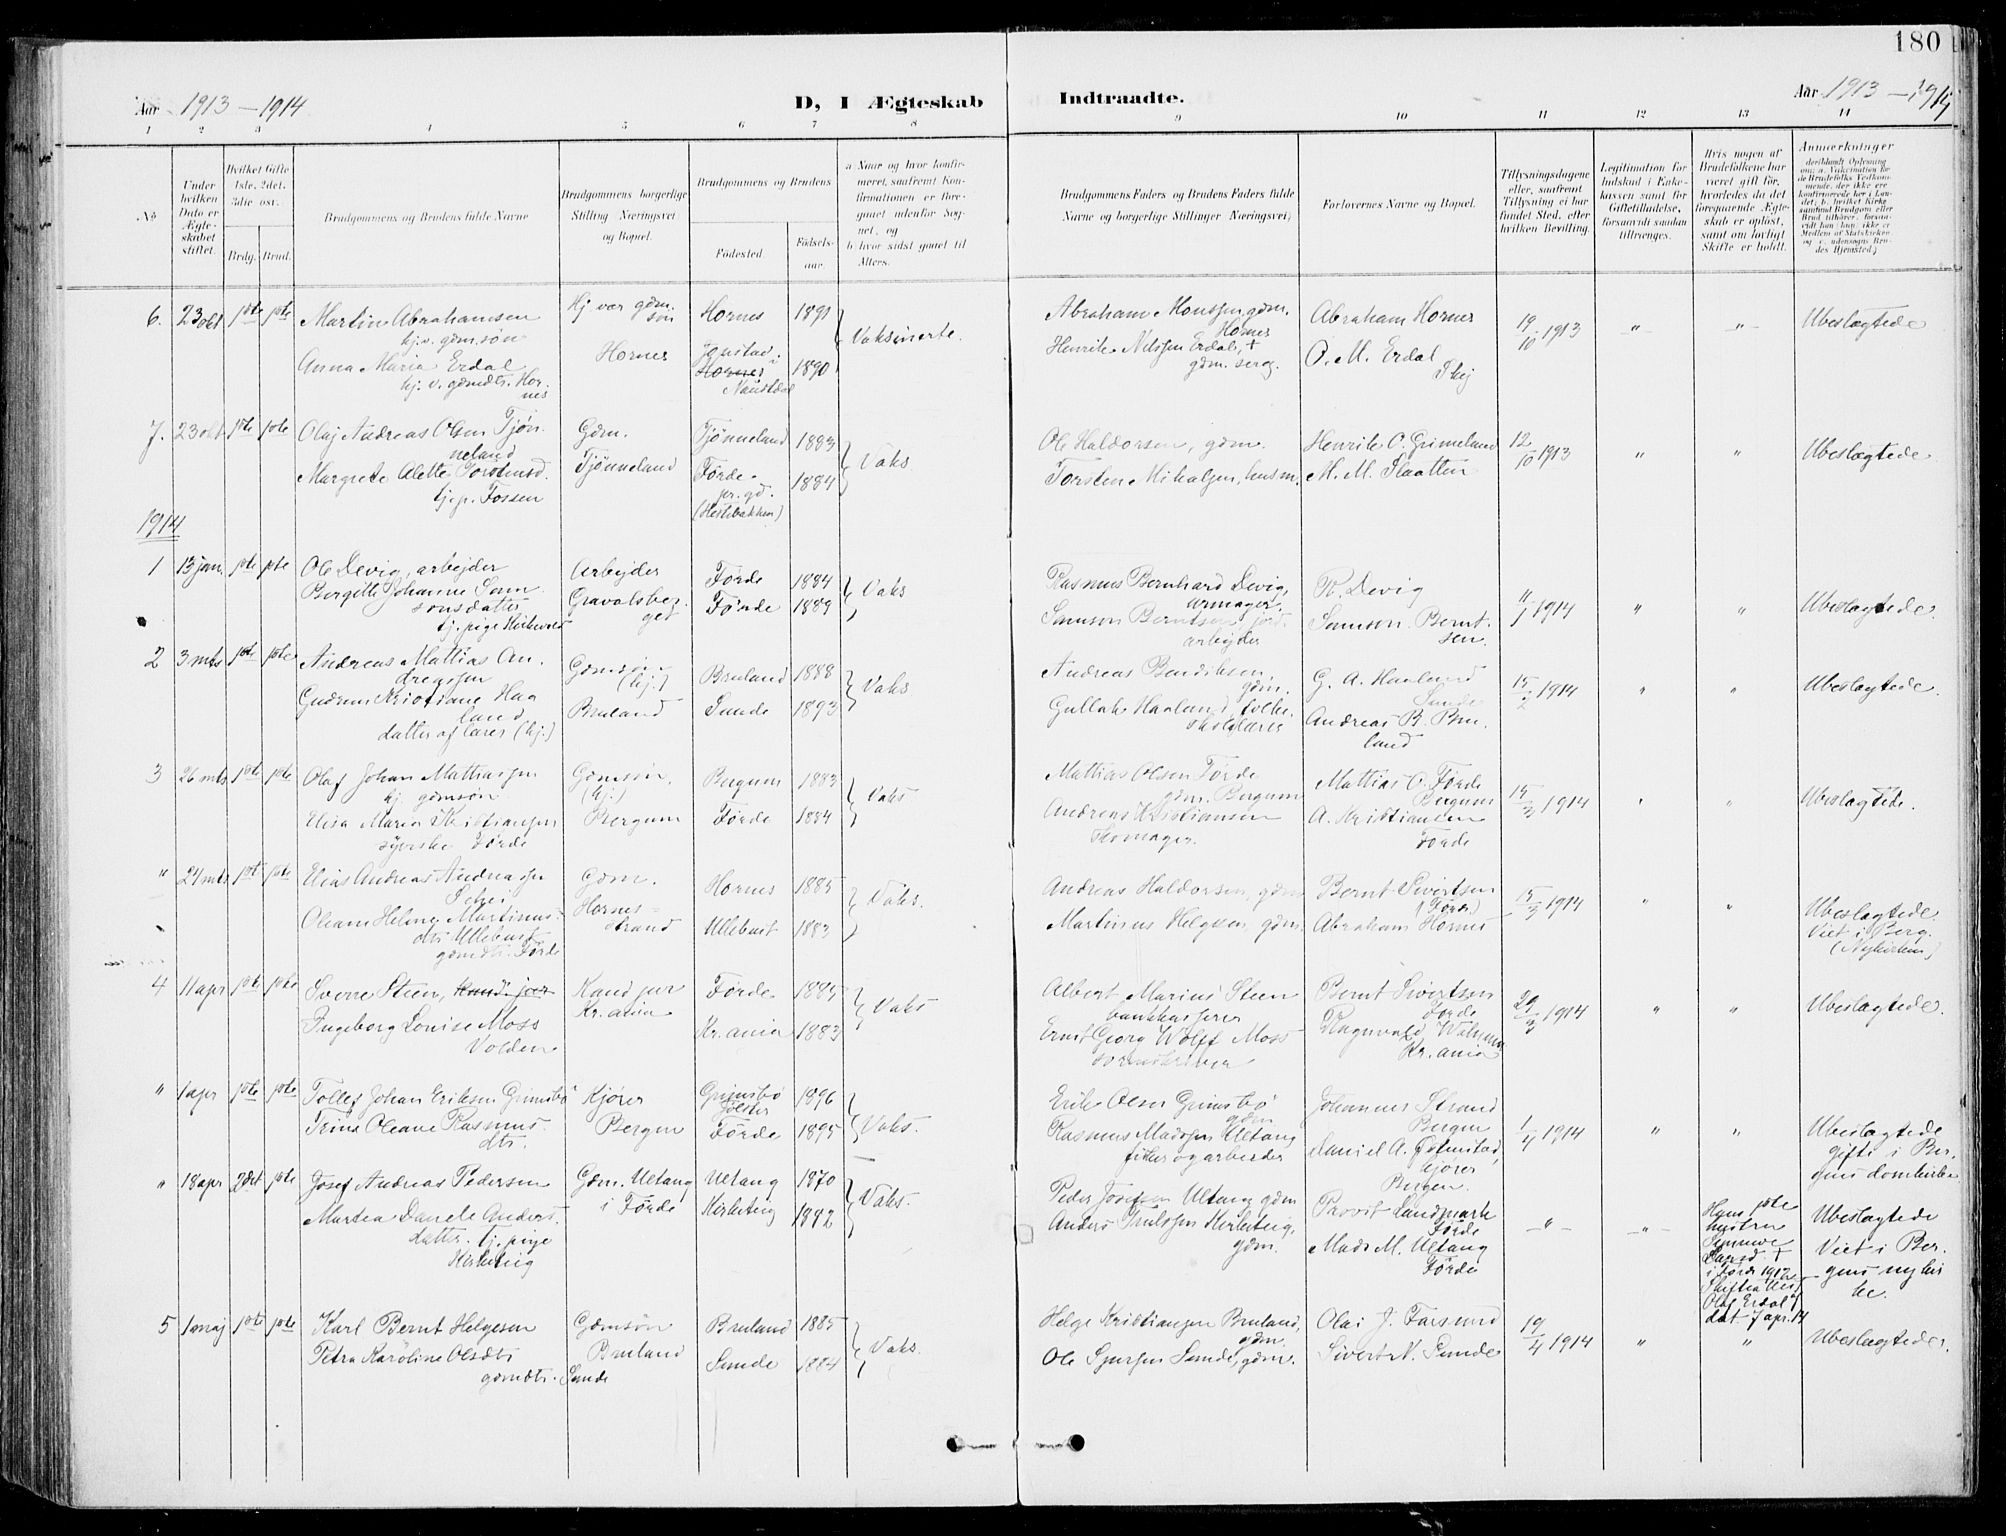 180
Aar 1913 – 1914
D, I Ægteskab Indtraadte.
Aar 1913 – 1914
1 2 3 4 5 6 7 8 9 10 11 12 13 14
No
Under hvilken Dato er Ægteskabet stiftet.
Hvilket Gifte 1ste, 2det, 3die osv.
Brdg. Brud.
Brudgommens og Brudens fulde Navne
Brudgommens borgerlige Stilling Næringsvei og Bopæl.
Brudgommens og Brudens
Fødested
Fødselsaar.
a Naar og hvor konfirmeret, saafremt Konfirmationen er foregaaet udenfor Sognet, og
b hvor sidst gaaet til Alters.
Brudgommens Faders og Brudens Faders fulde Navne og borgerlige Stillinger Næringsvei)
Forlovernes Navne og Bopæl.
Tillysningsdagene eller, saafremt Tillysning ei har fundet Sted, efter hvilken Bevilling.
Legitimation for Indskud i Enkekassen samt for Giftetilladelse, forsaavidt saadan tiltrænges.
Hvis nogen af Brudefolkene har været gift før, hvorledes da det foregaaende Ægteskab er opløst, samt om lovligt Skifte er holdt.
Anmærkninger
6. 23 okt 1ste 1ste
Martin Abrahamsen
hj.v. gdm.søn
Anna Maria Erdal
hj. v. gdmdtr. Hornes
Hj vær gdm.søn
Hornes
Hornes 1891
Jonstad i Hornes Naustdal 1890
Vaksinerte.
Abraham Monssen gdm. Hornes
Henrik Nilssen Erdal, +
Abraham Hornes
O. M. Erdal
Skej
19/10 1913
" "
Ubeslægtede
7. 23 okt 1ste 1ste
Olaj Andreas Olsen Tjønneland
Margrete Olette Torstensd.
tj.p. Fossen
Gdm.
Tjønneland
Tjønneland 1883
Førde pr.gd. 1884
(Hestebakken)
Vaks
Ole Haldorsen, gdm.
Torsten Mikalsen, husm.
Henrik O. Grimeland
M. M. Slaatten
12/10 1913
" "
Ubeslægtede.
1914
1 13 jan. 1ste 1ste
Ole Devig, arbejder
Bergitte Johanne Samsonsdatter
tj. pige
Arbejder
Gravalsberget
Førde 1884
Førde 1889
Vaks
Rasmus Bernhard Devig,
urmager.
Samson Berntsen jord.
arbejder
R. Devig
Samson Berntsen.
11/1 1914
" "
Ubeslægtede.
2 3 mts 1ste 1ste
Andreas Mattias Andreassen
Gudrun Kristiane Haaland
datter af lærer (hj.)
Gdmsøn
(hj.)
Bruland
Bruland 1888
Sunde 1893
Vaks
Andreas Bendiksen,
gdm.
Gullak Haaland, folke.
skolelærer
G. A. Haaland
Sunde
Andreas B. Bruland
15/2 1914
" "
Ubeslægtede.
3 26 mts 1ste 1ste
Olaf Johan Mathiassen
hj. gdmsøn
Elisa Maria Kristiansen
syerske Førde
Gdmsøn.
(hj.)
Bergum
Bergum 1883
Førde 1884
Vaks
Mattias Olsen Førde
gdm. Bergum
Andreas Kristiansen
skomager.
Mattias O. Førde
Bergum
A. Kristiansen
Førde
15/3 1914
" "
Ubeslægtede.
" 24 mts 1ste 1ste
Elias Andreas Andreassen
Oleane Helene Martinusdtr Ullebust
gdmdtr. Førde
Gdm.
Hornesstrand
Hornes 1885
Ullebust 1883
Vaks.
Andreas Haldorsen, gdm
Martinus Helgesen, gdm.
Bernt Sivertsen
(Førde)
Abraham Hornes
15/3 1914
" "
Ubeslægtede.
Viet i Berg.
(Nykirken)
4 11 apr 1ste 1ste
Sverre Steen, kand. jur
Ingeborg Louise Moss
Volden
Kand jur
Kr.ania
Førde 1885
Kr.ania 1883
Vaks
Albert Marius Steen
bankkasserer
Ernst Georg Wolff Moss
sorenskriver
Bernt Sivertsen
Førde
Ragnvald
Kr.ania
29/3 1914
" "
Ubeslægtede.
" 1 apr 1ste 1ste
Tollef Johan Eriksen Grimsbø
Trine Oleane Rasmusdtr.
Kjører
Bergen
Grimsbø Jølster 1896
Førde 1895
Vaks.
Erik Olsen Grimsbø
gdm
Rasmus Madssen Ultang
fisker og arbeider
Johannes Strand
Bergen
Daniel A.
kjører
Bergen.
1/4 1914
" "
Ubeslægtede
gifte i Bergens domkirke
" 18 apr 2det 1ste
Josef Andreas Pedersen
Martea Danele Andersdatter. tj. pige
Kirketeig
Gdm. Ultang
i Førde
Ultang 1870
Kirketeig 1882
Vaks.
Peder Josefsen Ultang gdm
Anders Trulssen Kirketeig,
gdm.
Provst Landmark
Førde
Mads M. Ultang
Førde
–"– –"–
Hans 1ste hustru
+
i Førde 1912
Olaf Erdal
dat. 7 apr. 14
Ubeslægtede
Viet i Bergens nykirke.
5 1 maj 1ste 1ste
Karl Bernt Helgesen
Petra Karoline Olsdtr
gdmdtr. Sunde
Gdmsøn
Bruland
Bruland 1885
Sunde 1884
Vaks.
Helge Kristiansen Bruland,
gdm.
Ole Sjursen Sunde, gdm.
Olai J. Farsund
Sivert N. Sunde
19/4 1914
" "
Ubeslægtede.